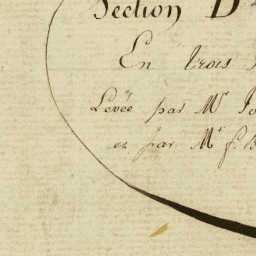 Section D
En trois
Levée par Mr
et par Mr f. B